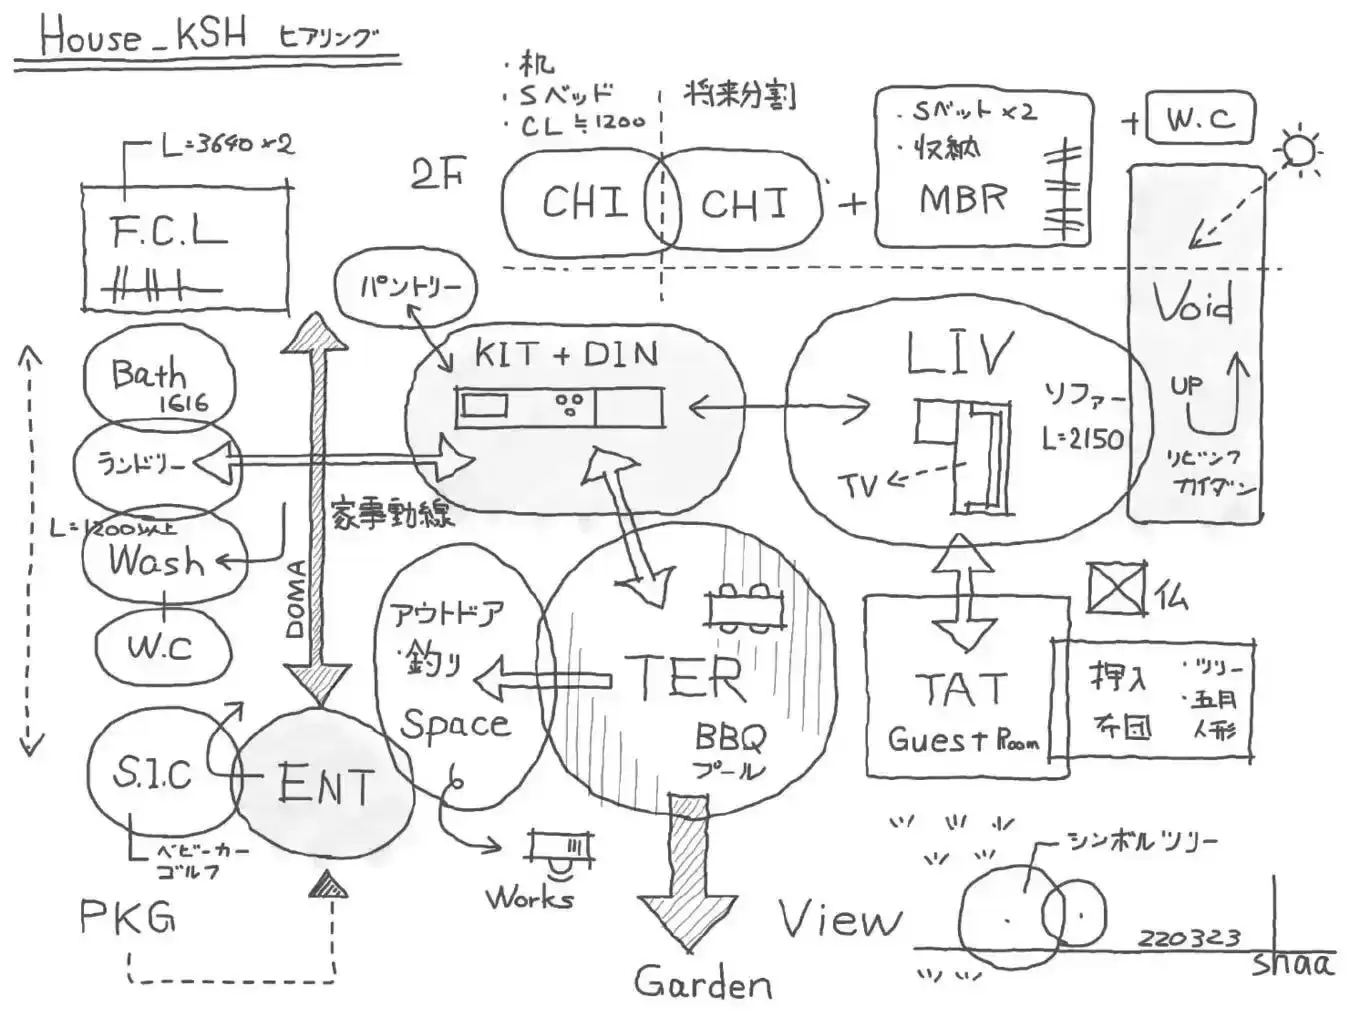 House_KSH ヒアリング
・机
・Sベッド
・CL≒1200
将来分割
2F
CHI
CHI
+
・Sベット×2
・収納
MBR
+
W.C
L=3640×2
F.C.L
パントリー
Bath
1616
ランドリー
L=1200以上
Wash
W.C
S.I.C
ベビーカー
ゴルフ
ENT
PKG
DOMA
家事動線
KIT+DIN
LIV
ソファー
L=2150
TV
Void
UP
リビング
カイダン
アウトドア
・釣り
Space
Works
TER
BBQ
プール
Garden
仏
TAT
Guest Room
押入
布団
・ツリー
・五月
人形
View
シンボルツリー
220323
shaa